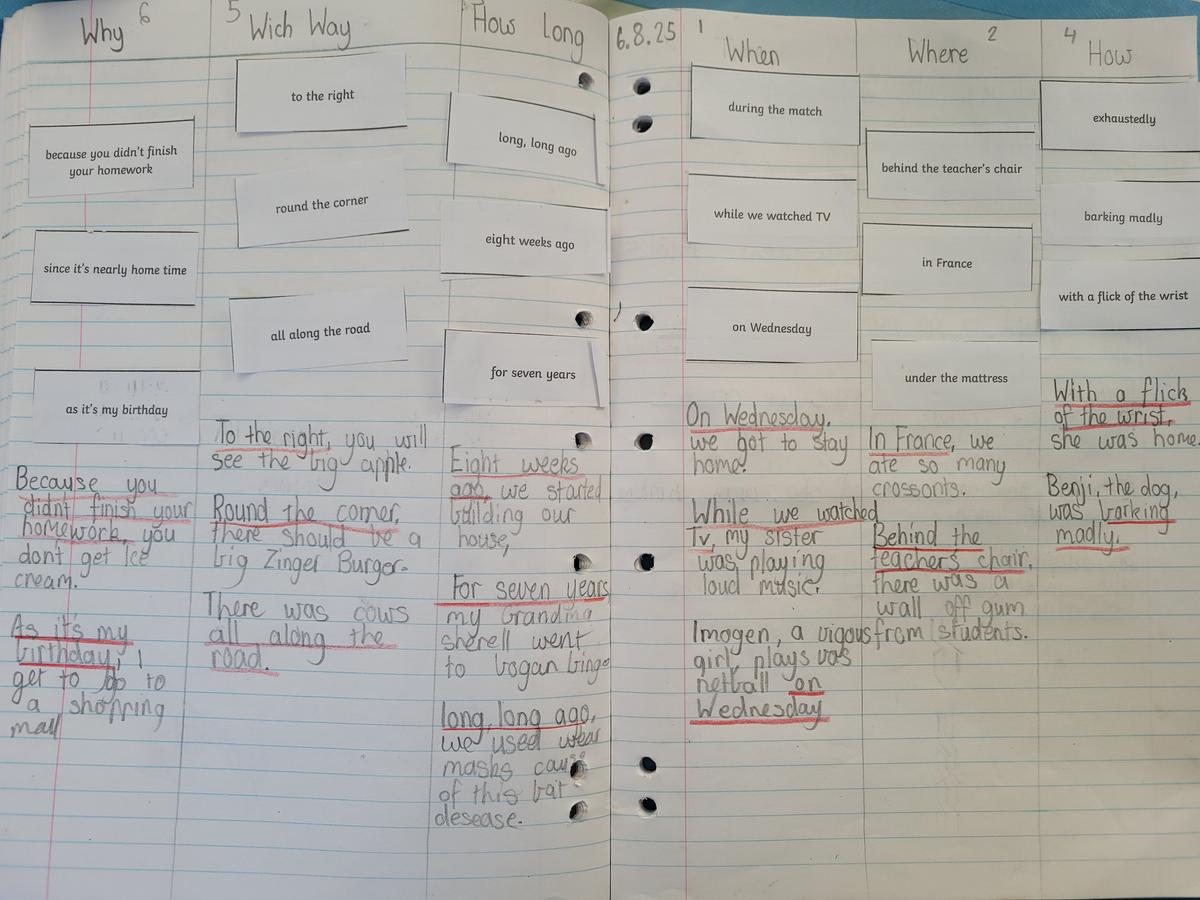 Why 6
because you didn't finish
your homework
since it's nearly home time
as it's my birthday
Because you
didnt finish your
homework, you
don't get Ice
cream.
As it's my
birthday, I
get to go to
a shopping
mall
5 Wich Way
to the right
round the corner
all along the road
To the right, you will
see the big apple.
Round the corner,
there should be a
big Zinger Burger.
There was cows
all along the
road.
How Long
long, long ago
eight weeks ago
for seven years
Eight weeks
ago, we started
building our
house,
For seven years
my grandma
sherell went
to bogan bingo
long, long ago,
we used wear
masks cause
of this bat
desease.
6.8.25
1 When
during the match
while we watched TV
on Wednesday
On Wednesday,
we got to stay
home!
While we watched
Tv, my sister
was playing
loud music.
Imogen, a vigous
girl, plays
netball on
Wednesday
Where 2
behind the teacher's chair
in France
under the mattress
In France, we
ate so many
crossonts.
Behind the
teachers chair,
there was a
wall off gum
from students.
4 How
exhaustedly
barking madly
with a flick of the wrist
With a flick
of the wrist,
she was home.
Benji, the dog,
was barking
madly.